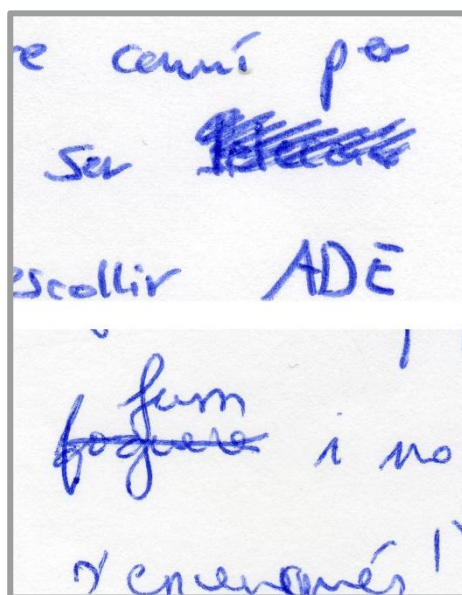 camí per
ser
escollir ADE
fum
foguera i no
s'encengués!